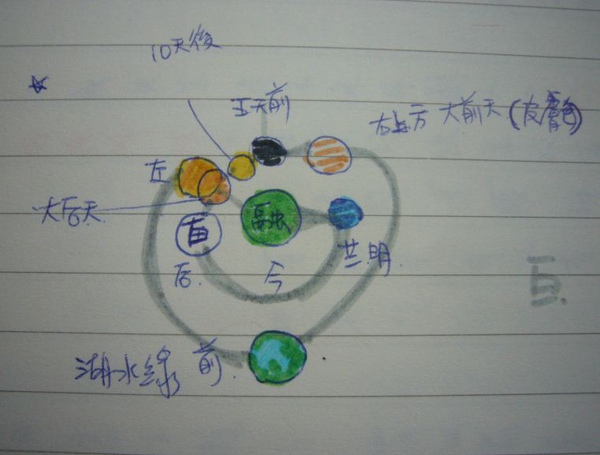 10天後
五天前
右上方 大前天 (皮膚色)
左
大后天
融
盲
后
今
共明
湖水綠 前